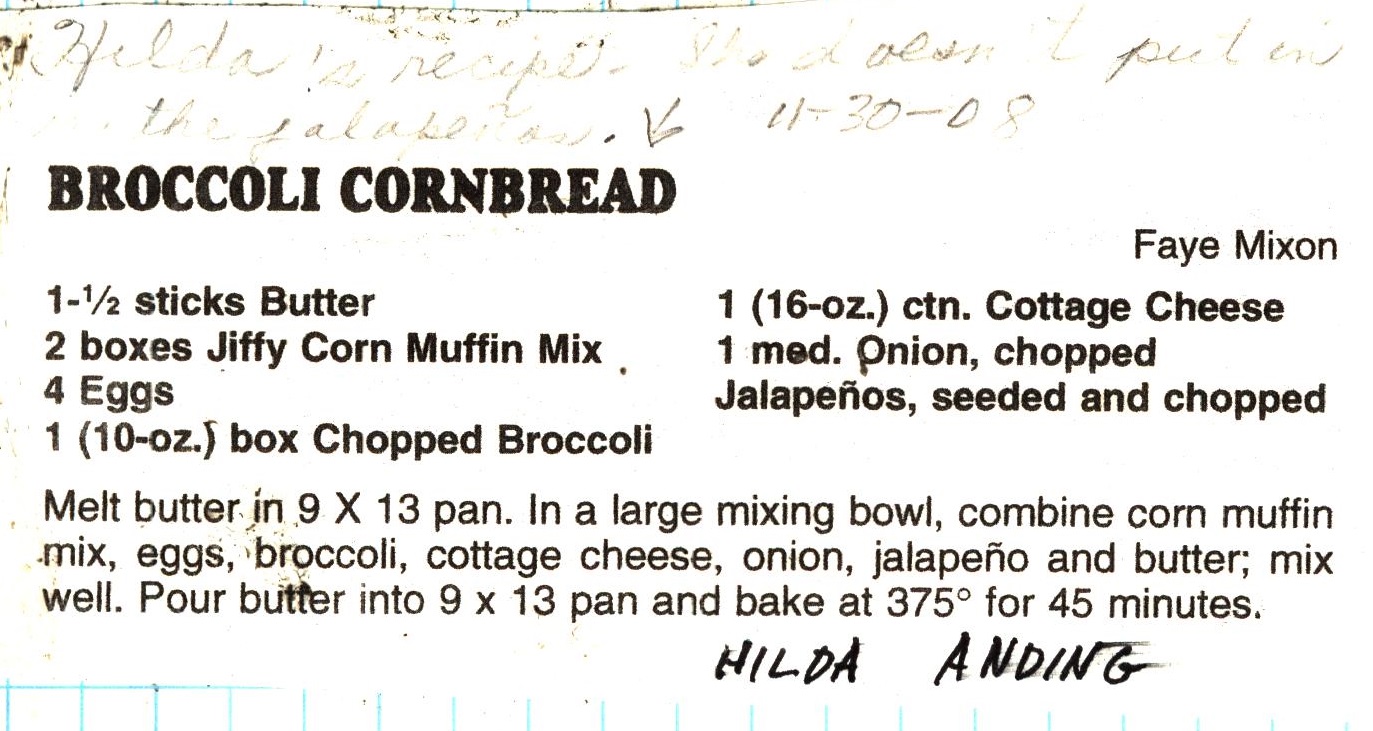 Hilda's recipe. She doesn't put in
the jalapeños. ↓ 11-30-08
BROCCOLI CORNBREAD
Faye Mixon
1-½ sticks Butter
2 boxes Jiffy Corn Muffin Mix
4 Eggs
1 (10-oz.) box Chopped Broccoli
1 (16-oz.) ctn. Cottage Cheese
1 med. Onion, chopped
Jalapeños, seeded and chopped
Melt butter in 9 X 13 pan. In a large mixing bowl, combine corn muffin
mix, eggs, broccoli, cottage cheese, onion, jalapeño and butter; mix
well. Pour butter into 9 x 13 pan and bake at 375° for 45 minutes.
HILDA ANDING